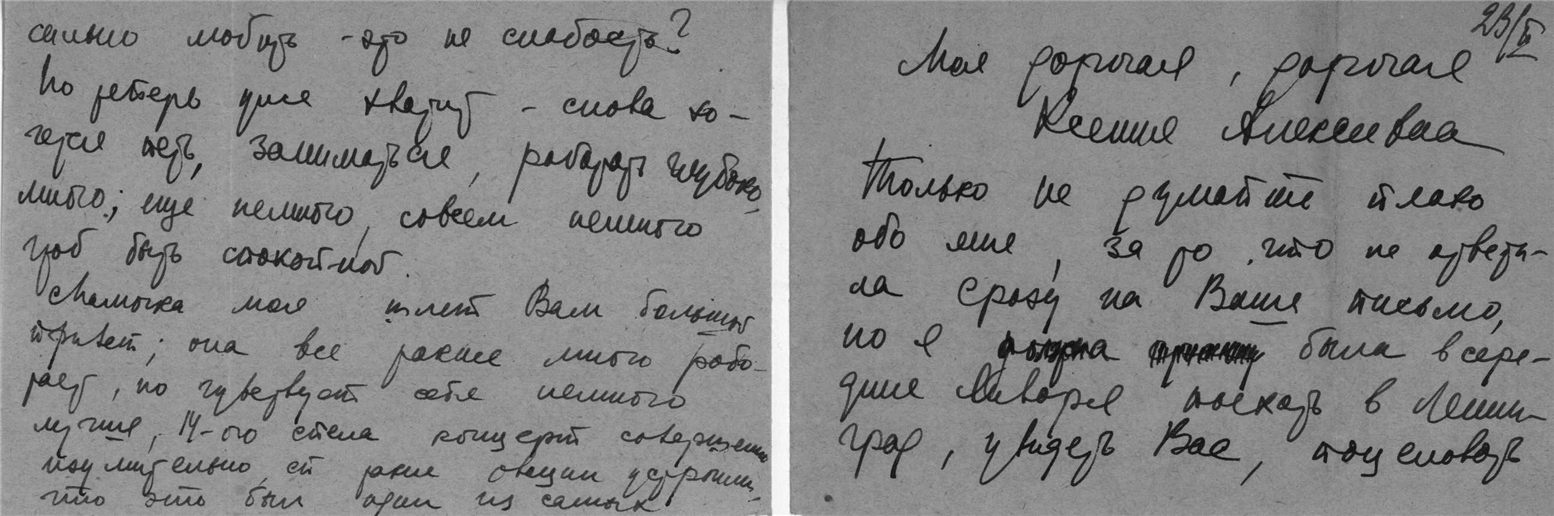 сильно любить - это не слабость?
Но теперь уже хватит - снова хо-
чется петь, заниматься, работать глубоко,
много; еще немного, совсем немного
чтоб быть спокойной.
Мамочка моя шлет Вам большой
привет; она все также много рабо-
тает, но чувствует себя немного
лучше, 14-ого спела концерт совершенно
изумительно ей такие овации устроили,
что это был один из самых
23/II
Моя дорогая, дорогая
Ксения Алексеевна
Только не думайте плохо
обо мне, за то что не ответи-
ла сразу на Ваше письмо,
но я была в сере-
дине Января поехать в Ленин
град, увидеть Вас, поцеловать